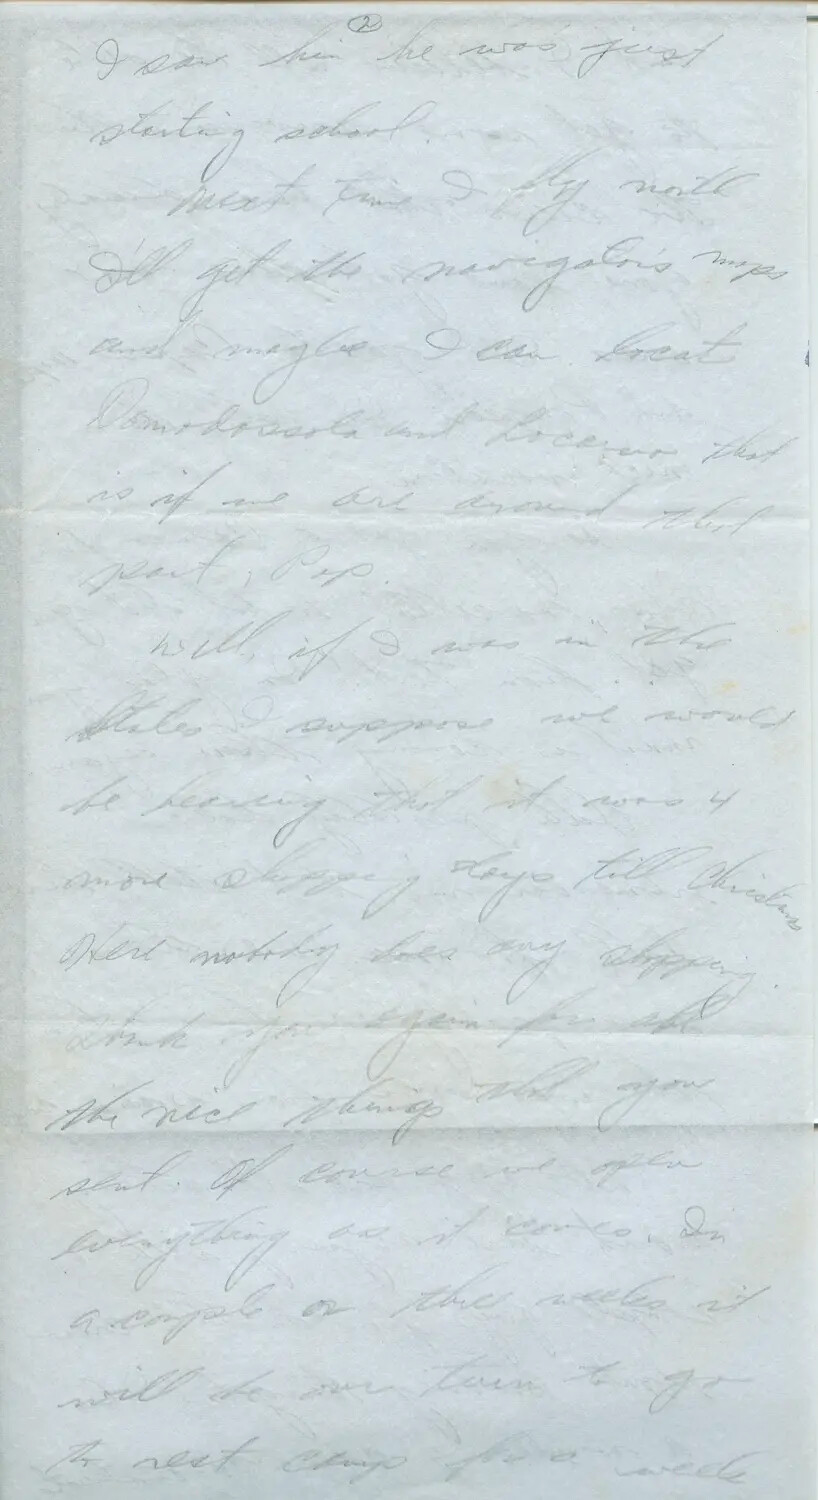 2
I saw him he was just
starting school.
Next time I fly north
I'll get the navigator's maps
and maybe I can locat
Domodossola and Locarno that
is if we are around that
part, Pop.
Well, if I was in the
States I suppose we would
be hearing that it was 4
more shopping days till Christmas
Here nobody does any shopping.
Thank you again for all
the nice things that you
sent. Of course we open
everything as it comes. In
a couple or three weeks it
will be our turn to go
to rest camp for a week